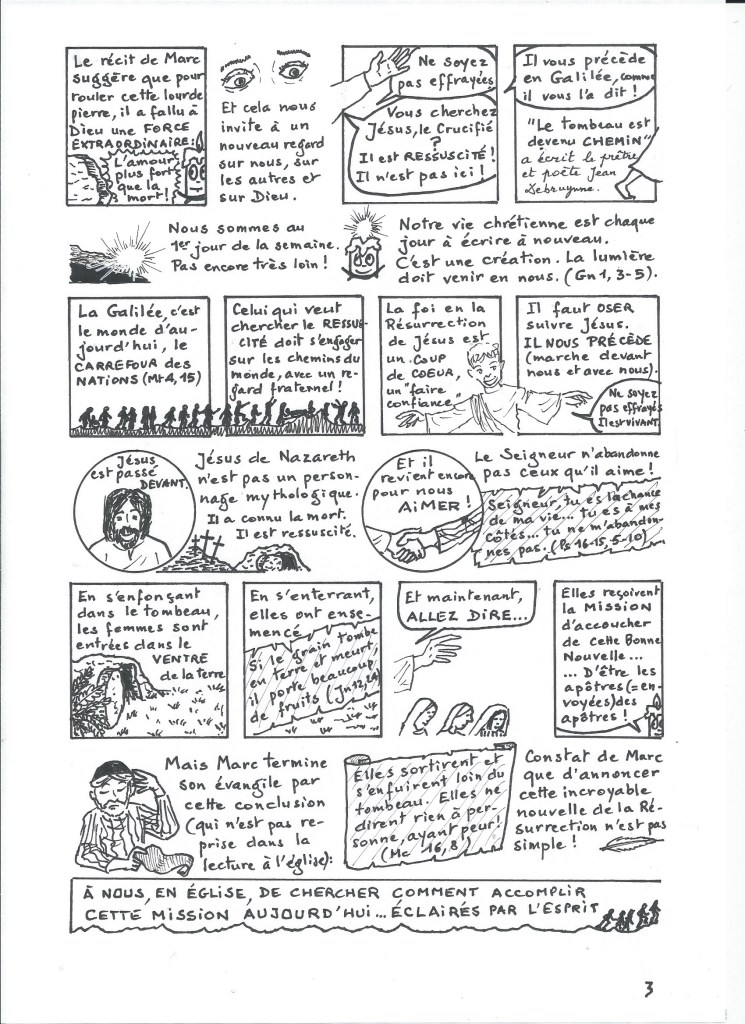 Le récit de Marc
suggère que pour
rouler cette lourde
pierre, il a fallu à
Dieu une FORCE
EXTRAORDINAIRE:
L'amour
plus fort
que la
mort!
Et cela nous
invite à un
nouveau regard
sur nous, sur
les autres et
sur Dieu.
Ne soyez
pas effrayées
Vous cherchez
Jésus, le Crucifié
?
Il est RESSUSCITÉ!
Il n'est pas ici!
Il vous précède
en Galilée, comme
il vous l'a dit!
"Le tombeau est
devenu CHEMIN"
a écrit le prêtre
et poète Jean
Debruynne.
Nous sommes au
1er jour de la semaine.
Pas encore très loin!
Notre vie chrétienne est chaque
jour à écrire à nouveau.
C'est une création. La lumière
doit venir en nous. (Gn 1, 3-5).
La Galilée, c'est
le monde d'au-
jourd'hui, le
CARREFOUR des
NATIONS (Mt 4, 15)
Celui qui veut
chercher le RESSUS-
CITÉ doit s'engager
sur les chemins du
monde, avec un re-
gard fraternel!
La foi en la
Résurrection
de Jésus est
un COUP
de COEUR,
un "faire
confiance"
Il faut OSER
suivre Jésus.
IL NOUS PRÉCÈDE
(marche devant
nous et avec nous).
Ne soyez
pas effrayés
Il est VIVANT.
Jésus
est passé
DEVANT.
Jésus de Nazareth
n'est pas un person-
nage mythologique.
Il a connu la mort.
Il est ressuscité.
Et il
revient encore
pour nous
AIMER!
Le Seigneur n'abandonne
pas ceux qu'il aime!
Seigneur, tu es la chance
de ma vie... tu es à mes
côtés... tu ne m'abandon-
nes pas. (Ps 16-15, 5-10)
En s'enfonçant
dans le tombeau,
les femmes sont
entrées dans le
VENTRE
de la terre
En s'enterrant,
elles ont ense-
mencé
Si le grain tombe
en terre et meurt,
il porte beaucoup
de fruits (Jn 12, 24)
Et maintenant,
ALLEZ DIRE...
Elles reçoivent
la MISSION
d'accoucher
de cette Bonne
Nouvelle...
... D'être les
apôtres (=en-
voyées) des
apôtres!
Mais Marc termine
son évangile par
cette conclusion
(qui n'est pas re-
prise dans la
lecture à l'église):
Elles sortirent et
s'enfuirent loin du
tombeau. Elles ne
dirent rien à per-
sonne, ayant peur!
(Mc 16, 8)
Constat de Marc
que d'annoncer
cette incroyable
nouvelle de la Ré-
surrection n'est pas
simple!
À NOUS, EN ÉGLISE, DE CHERCHER COMMENT ACCOMPLIR
CETTE MISSION AUJOURD'HUI... ÉCLAIRÉS PAR L'ESPRIT
3